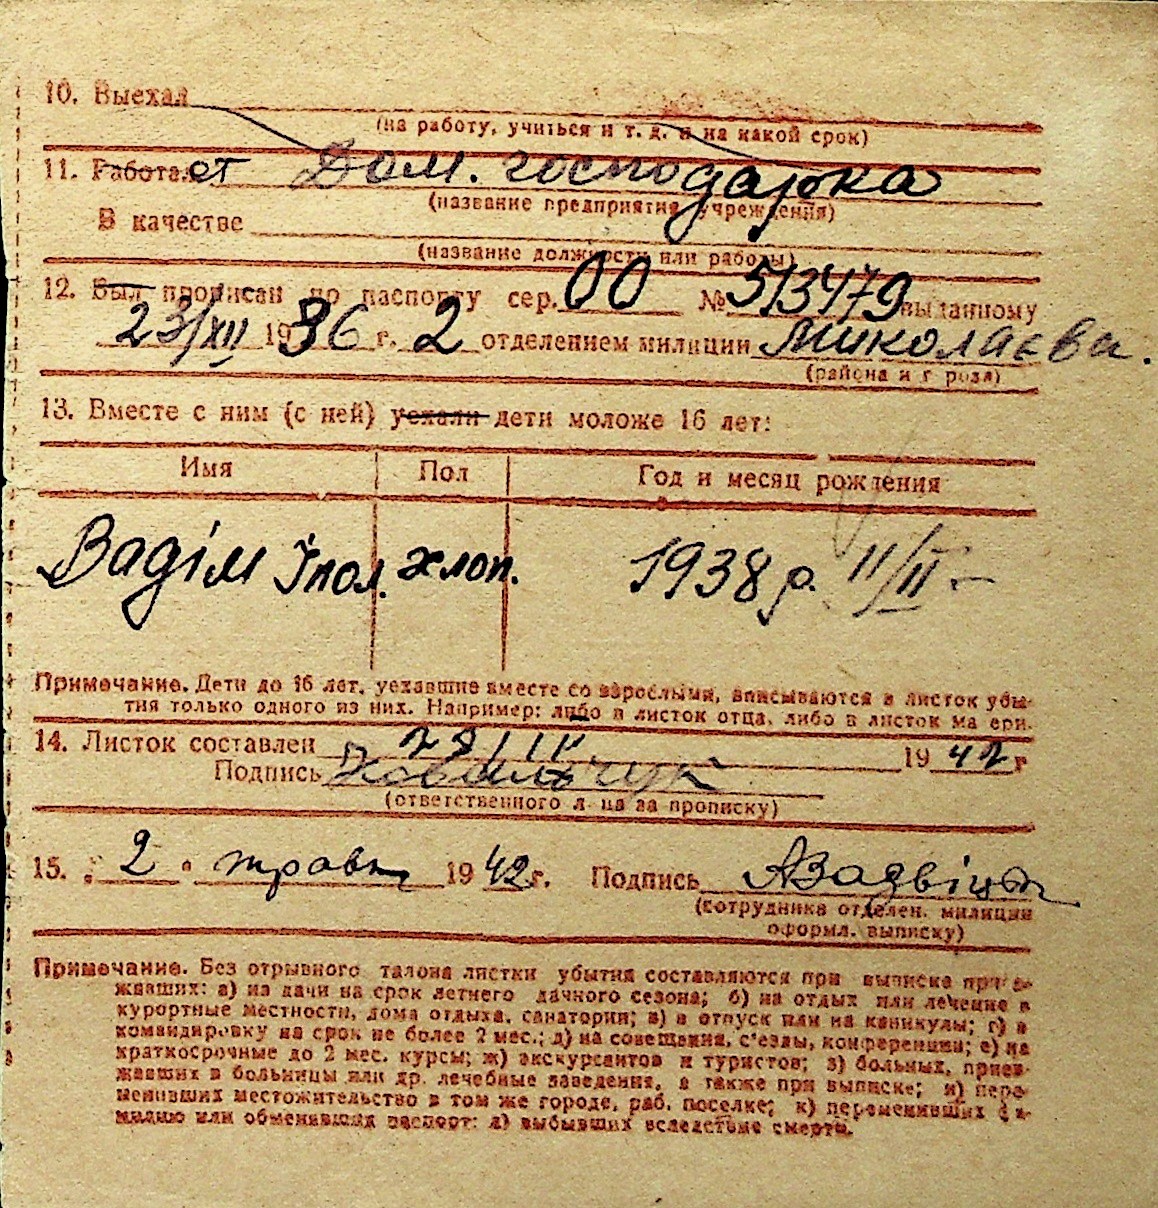 10. Выехал
(на работу, учиться и т. д. и на какой срок)
11. Работает Дом. господарка
(название предприятия, учреждения)
В качестве
(название должности или работы)
12. Был прописан по паспорту сер. 00 № 513479 выданному
23/XII 1936 г. 2 отделением милиции Миколаєва.
(района и города)
13. Вместе с ним (с ней) уехали дети моложе 16 лет:
Имя Пол Год и месяц рождения
Вадім Іпол. хлоп. 1938 р. 11/II
Примечание. Дети до 16 лет, уехавшие вместе со взрослыми, вписываются в листок убы-
тия только одного из них. Например: либо в листок отца, либо в листок матери.
14. Листок составлен 1942 г
Подпись Ковальчук
(ответственного лица за прописку)
15. „2" травн 1942 г. Подпись
(сотрудника отделен. милиции
оформл. выписку)
Примечание. Без отрывного талона листки убытия составляются при выписке приез-
жавших: а) из дачи на срок летнего дачного сезона; б) на отдых или лечение в
курортные местности, дома отдыха, санатории; в) в отпуск или на каникулы; г) в
командировку на срок не более 2 мес.; д) на совещания, с'езды, конференции; е) на
краткосрочные до 2 мес. курсы; ж) экскурсантов и туристов; з) больных, приез-
жавших в больницы или др. лечебные заведения, а также при выписке; и) пере-
менивших местожительство в том же городе, раб. поселке; к) переменивших фа-
милию или обменявших паспорт; л) выбывших вследствие смерти.